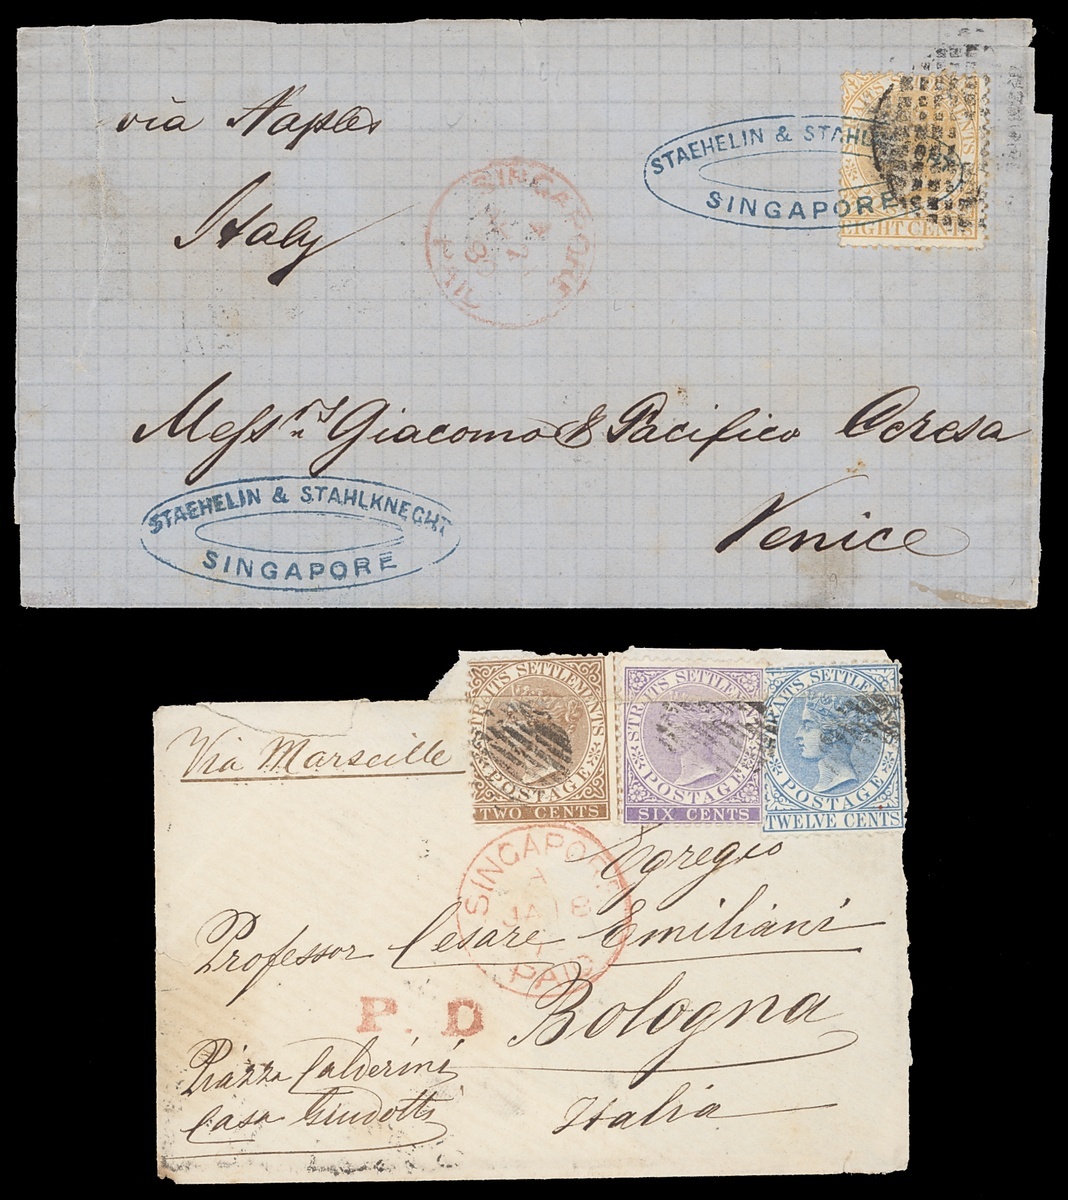 via Naples
Italy
STAEHELIN & STAHL
SINGAPORE
EIGHT CENTS
SINGAPORE
A
Mefsrs Giacomo & Pacifico Ceresa
Venice
STAEHELIN & STAHLKNECHT
SINGAPORE
Via Marseille
STRAITS SETTLEMENTS
POSTAGE
TWO CENTS
STRAITS SETTLEMENTS
POSTAGE
SIX CENTS
STRAITS SETTLEMENTS
POSTAGE
TWELVE CENTS
SINGAPORE
A
JA 18
PAID
Egregio
Professor Cesare Emiliani
P. D
Bologna
Piazza Calderini
Casa Guidotti
Italia